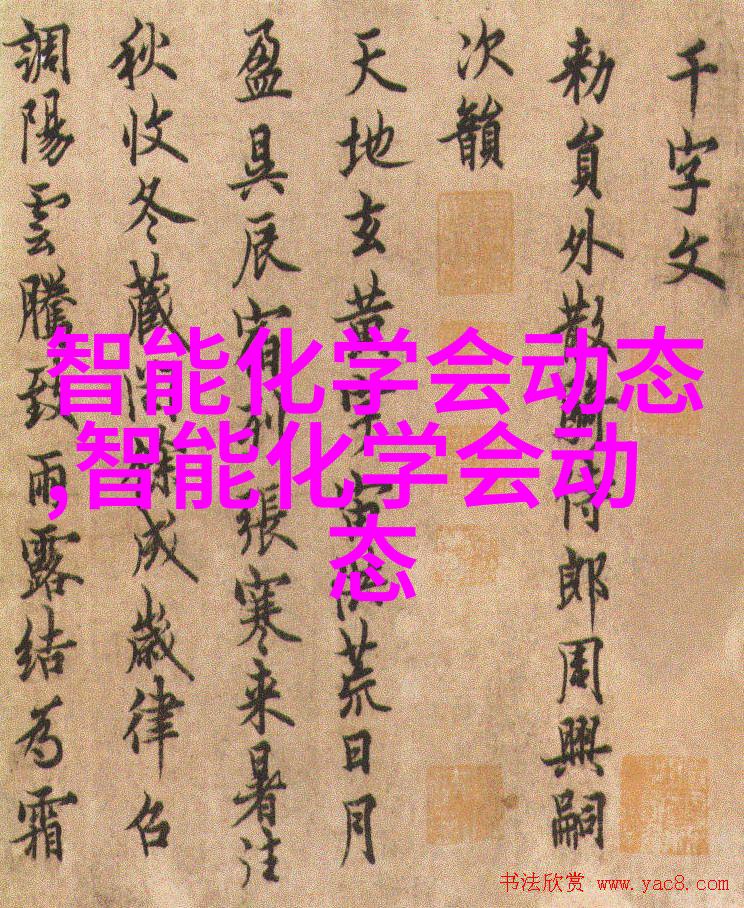 千字文
勅員外散騎侍郎周興嗣
次韻
天地玄黃宇宙洪荒日月
盈昃辰宿列張寒来暑往
秋收冬蔵閏餘成歲律召
調陽雲騰致雨露結為霜
智能化学会动态
,智能化学会动
态
书法欣赏 www.yac8.com